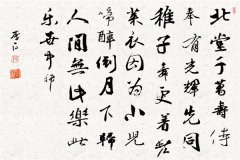 北堂千萬壽侍
奉有光輝先同
稚子舞更著老
萊衣因為小兒
啼醉倒月下歸
人間無此樂此
樂世中稀
李白